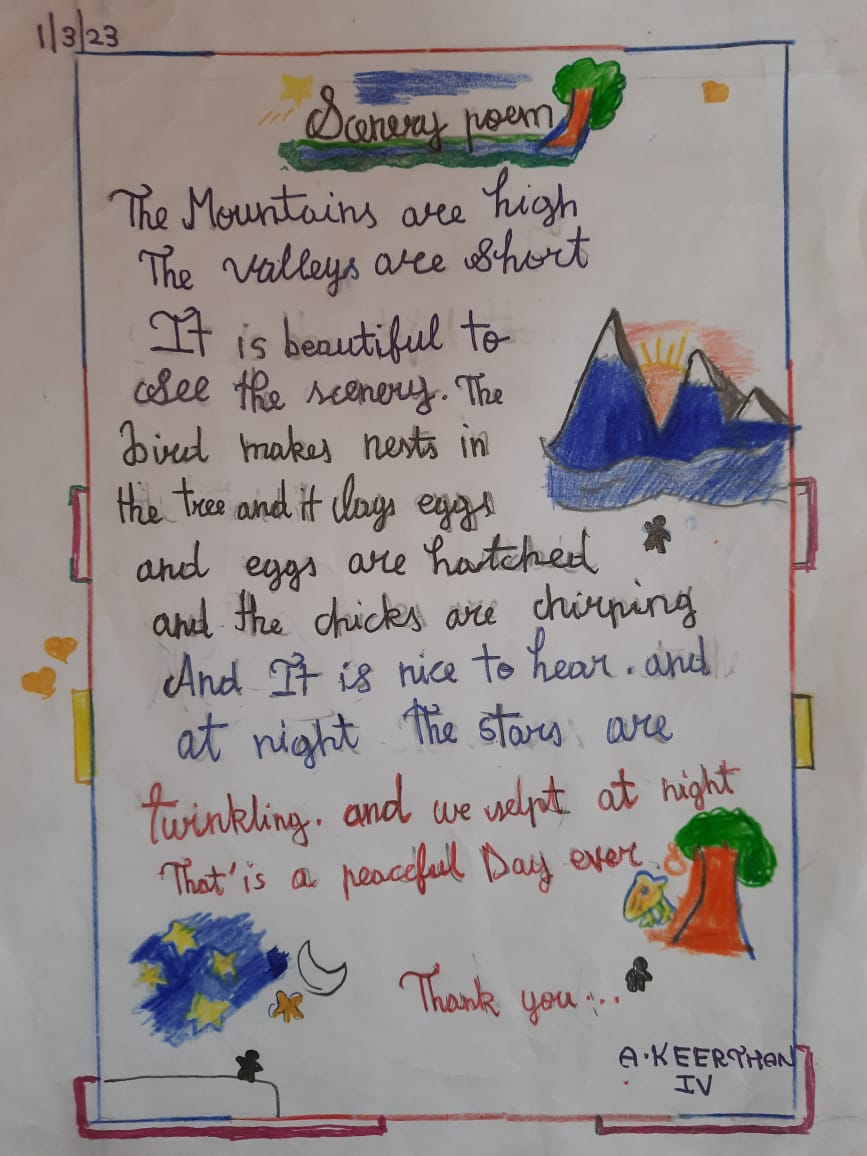 1/3/23
Scenery poem
The Mountains are high
The valleys are short
It is beautiful to
See the scenery. The
bird makes nests in
the tree and it lays eggs
and eggs are hatched
and the chicks are chirping
And It is nice to hear. and
at night the stars are
twinkling. and we slept at night
That'is a peaceful Day ever
Thank you...
A.KEERTHAN
IV